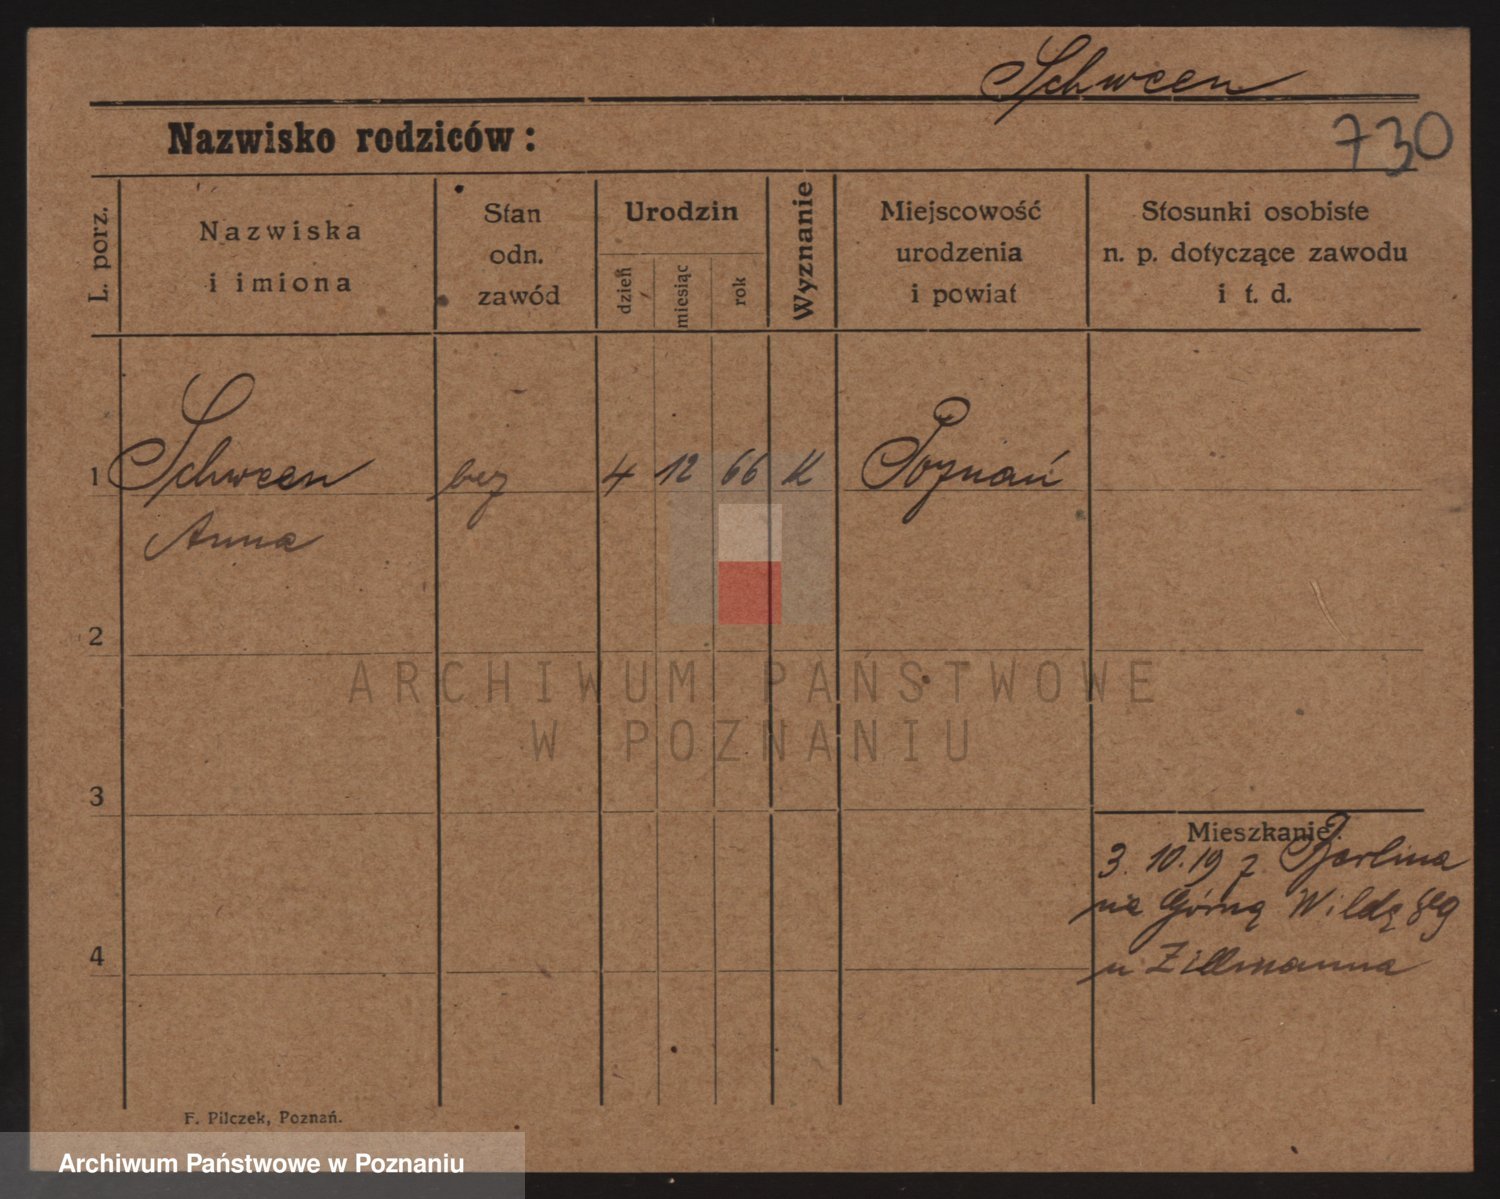 Schween
730
Nazwisko rodziców:
L. porz.
Nazwiska
i imiona
Stan
odn.
zawód
Urodzin
dzień
miesiąc
rok
Wyznanie
Miejscowość
urodzenia
i powiat
Stosunki osobiste
n. p. dotyczące zawodu
i t. d.
1 Schween bez 4 12 66 K Poznań
Anna
2
3
4
Mieszkanie:
3. 10. 19 z Berlina
na Górną Wildę 89
u Zillmanna
F. Pilczek, Poznań.
ARCHIWUM PAŃSTWOWE
W POZNANIU
Archiwum Państwowe w Poznaniu